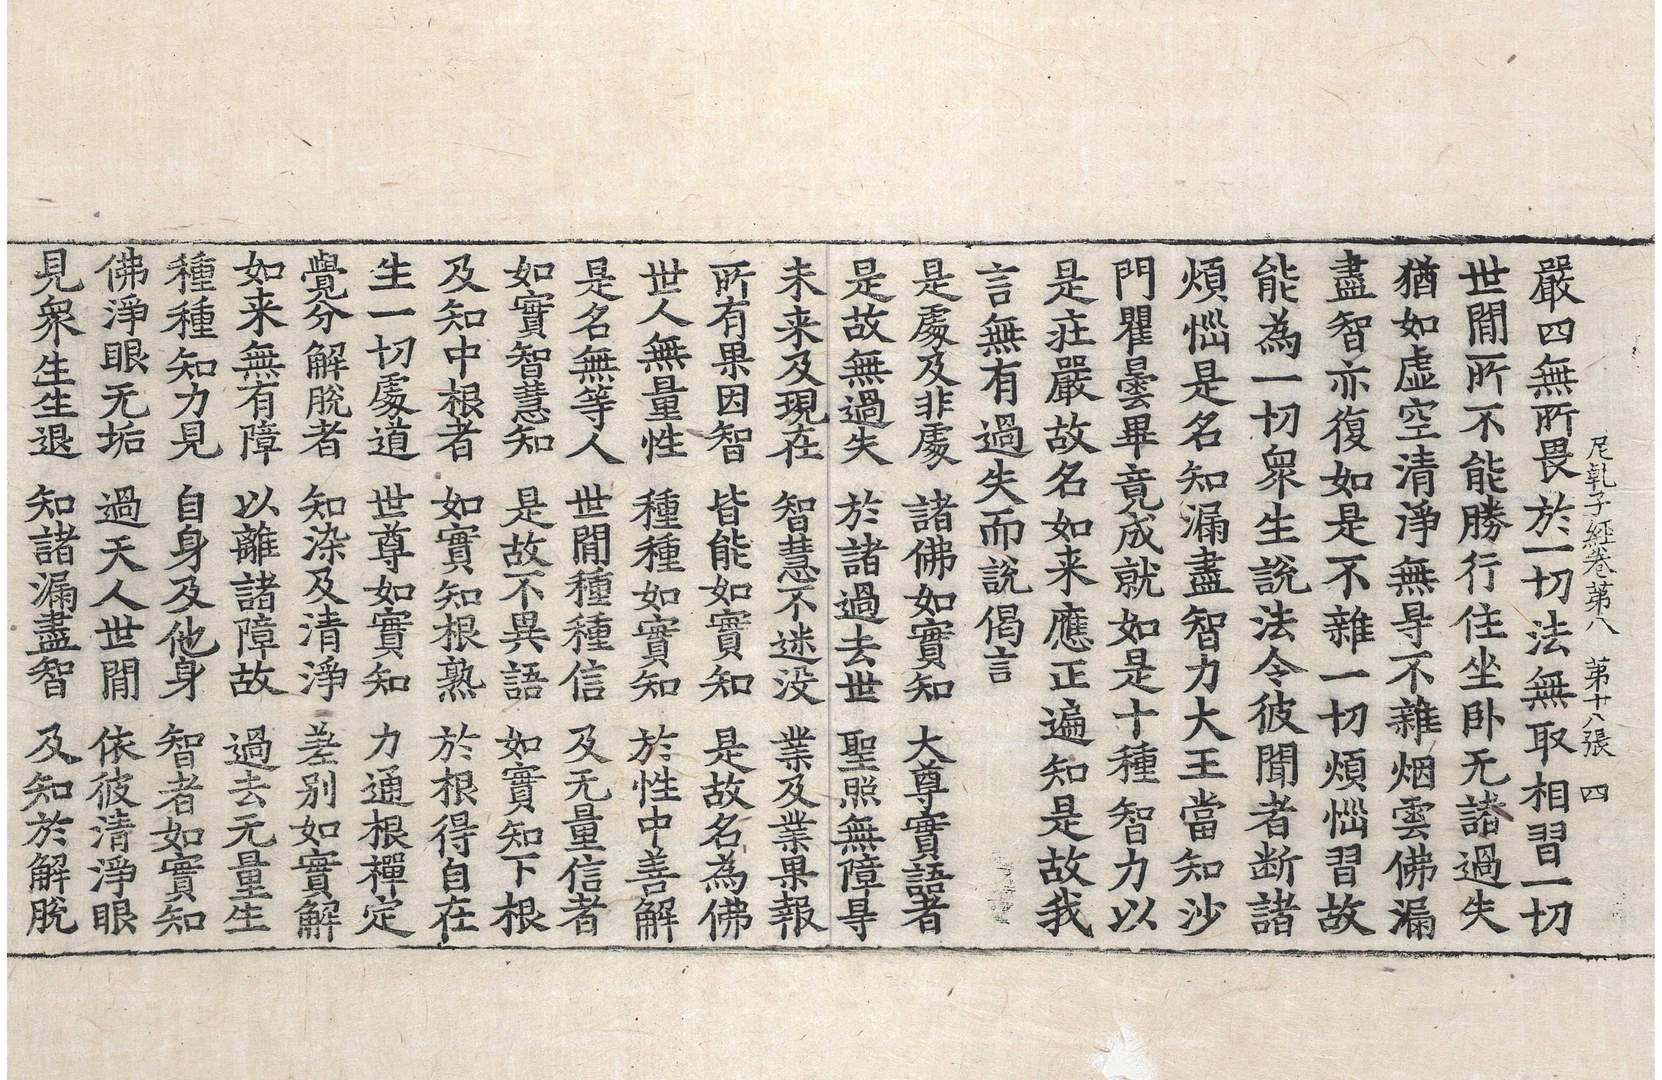 尼乹子經卷苐八　苐十八張　四
嚴四無所畏於一切法無取相習一切
世閒所不能勝行住坐卧无諸過失
猶如虛空清淨無㝵不雜烟雲佛漏
盡智亦復如是不雜一切煩惱習故
能為一切衆生說法令彼聞者断諸
煩惱是名知漏盡智力大王當知沙
門瞿曇畢竟成就如是十種智力以
是莊嚴故名如来應正遍知是故我
言無有過失而說偈言
是處及非處　諸佛如實知　大尊實語者
是故無過失　於諸過去世　聖照無障㝵
未来及現在　智慧不迷没　業及業果報
所有果因智　皆能如實知　是故名為佛
世人無量性　種種如實知　於性中善解
是名無等人　世閒種種信　及无量信者
如實智慧知　是故不異語　如實知下根
及知中根者　如實知根熟　於根得自在
生一切處道　世尊如實知　力通根禪定
覺分解脫者　知染及清淨　差别如實解
如来無有障　以離諸障故　過去无量生
種種知力見　自身及他身　智者如實知
佛淨眼无垢　過天人世閒　依彼清淨眼
見衆生生退　知諸漏盡智　及知於解脫